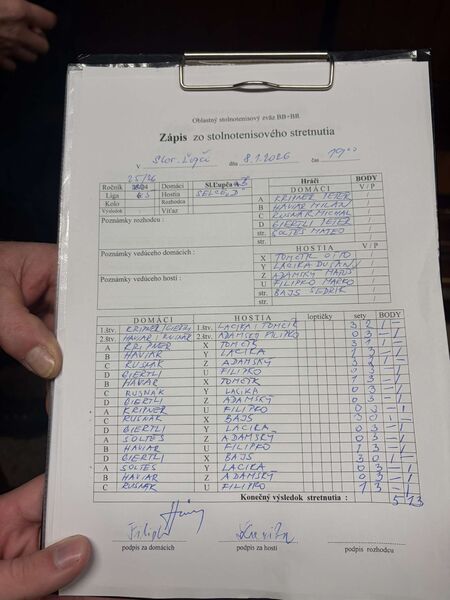 Oblastný stolnotenisový zväz BB+BR
Zápis zo stolnotenisového stretnutia
v Slov. Ľupči dňa 8.1.2026 čas 19 00
25/26
Ročník Domáci Sl.Ľupča B Hráči BODY
Liga 6 Hostia SELCE D DOMÁCI V / P
Kolo Rozhodca A KRIPNER PETER /
Výsledok : Víťaz B HAVIAR MILAN /
Poznámky rozhodcu : C RUSNÁK MICHAL /
D BIERTLI PETER /
str. ŠOLTÉS MATEO /
str. /
Poznámky vedúceho domácich : HOSTIA V / P
X TOMČÍK OTTO /
Y LACIKA DUŠAN /
Z ADAMSKÝ /
Poznámky vedúceho hostí : U FILIPKO MARKO /
str. BAJS /
str. /
DOMÁCI HOSTIA loptičky sety BODY
1.štv. KRIPNER / BIERTLI 1.štv. LACIKA / TOMČÍK 3 2 1 / –
2.štv. HAVIAR / RUSNÁK 2.štv. ADAMSKÝ FILIPKO 0 3 – / 1
A KRIPNER X TOMČÍK 3 1 1 / –
B HAVIAR Y LACIKA 1 3 – / 1
C RUSNÁK Z ADAMSKÝ 3 2 1 / –
D BIERTLI U FILIPKO 0 3 – / 1
B HAVIAR X TOMČÍK 1 3 – / 1
C RUSNÁK Y LACIKA 0 3 – / 1
D BIERTLI Z ADAMSKÝ 0 3 – / 1
A KRIPNER U FILIPKO 0 3 – / 1
C RUSNÁK X BAJS 3 0 1 / –
D BIERTLI Y LACIKA 0 3 – / 1
A ŠOLTÉS Z ADAMSKÝ 0 3 – / 1
B HAVIAR U FILIPKO 1 3 – / 1
D BIERTLI X BAJS 3 0 1 / –
A ŠOLTÉS Y LACIKA 0 3 – / 1
B HAVIAR Z ADAMSKÝ 0 3 – / 1
C RUSNÁK U FILIPKO 1 3 – / 1
Konečný výsledok stretnutia : 5 13
podpis za domácich podpis za hostí podpis rozhodcu